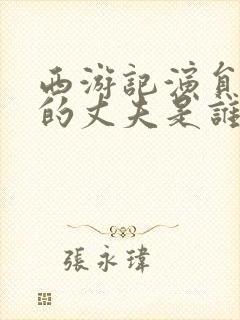 西游記演員
的丈夫是誰
張永瑋